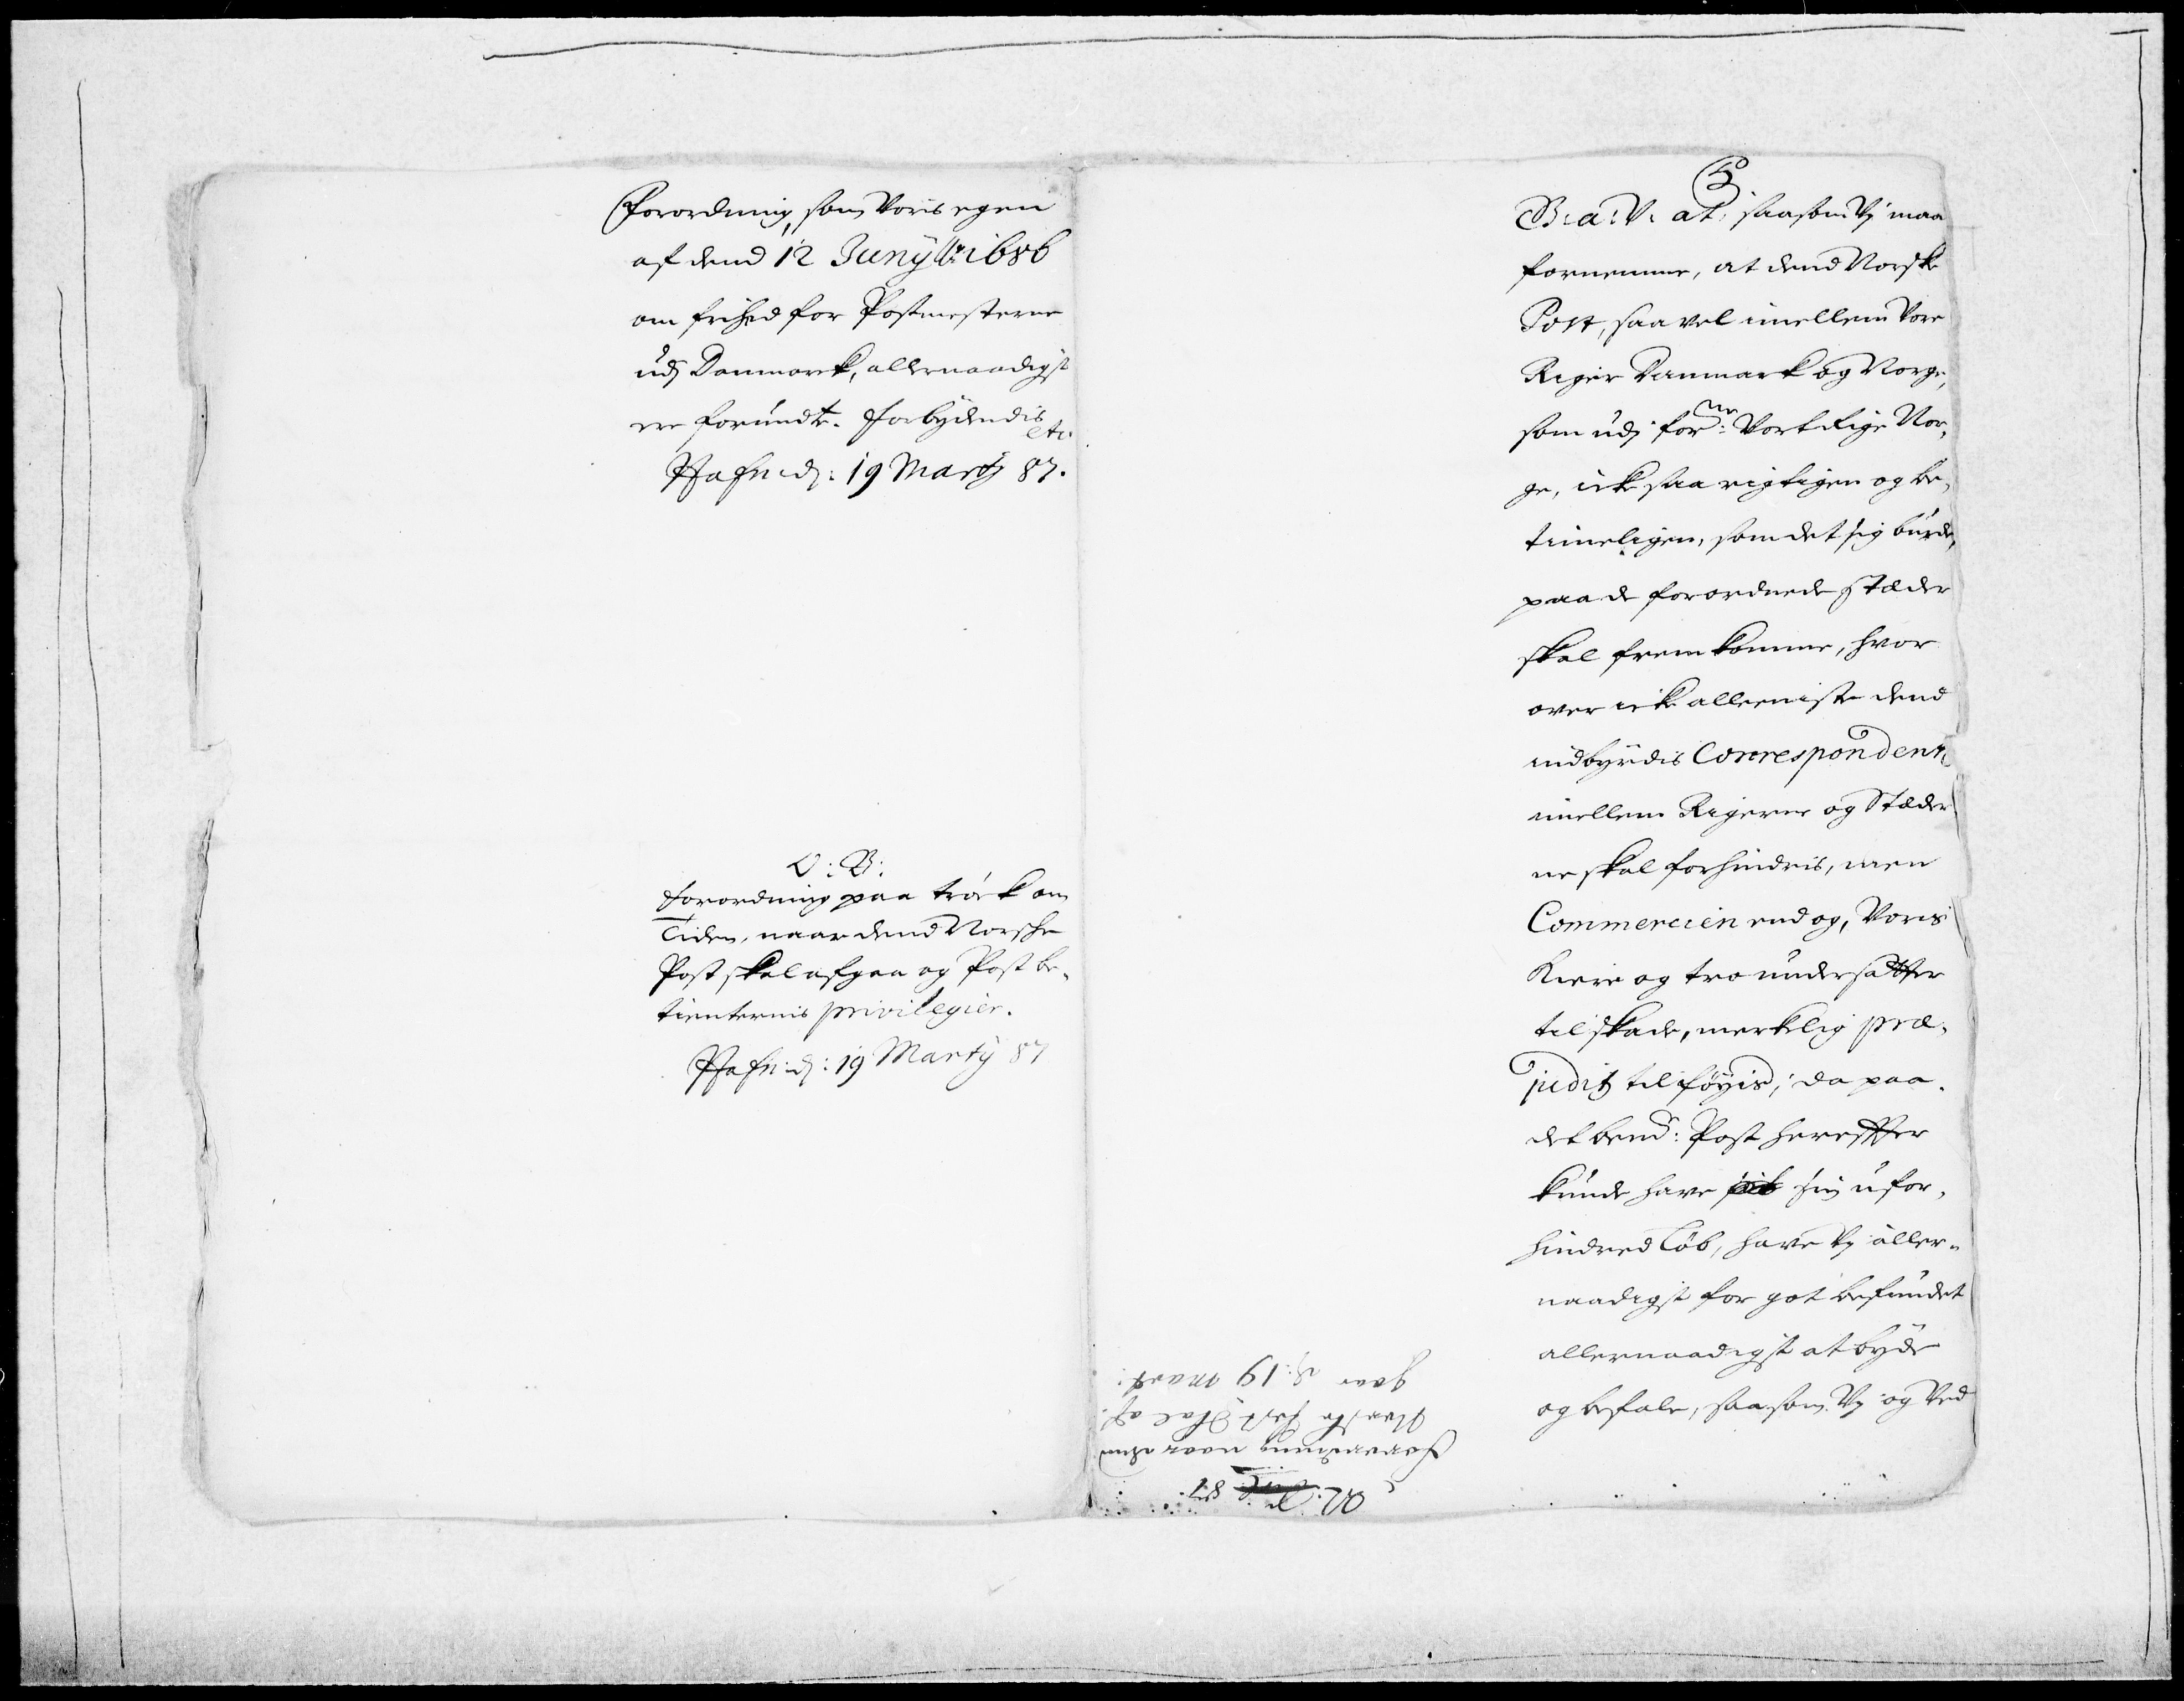 Forordning, som Voris egen
af dend 12 Junÿ A: 1686
om frihed for Postmesterne
udj Danmarck, allernaadigst
ere forundt. Forbydendis
etc.
Hafn: d: 19 Martj 87.
V: B:
Forordning paa tröck om
Tiden, naar dend Norsche
Post skal afgaa og Post be-
tienternis privilegier.
Hafn: d: 19 Martÿ 87
G. a. V. at, saasom Vj maa
fornemme, at dend Norske
Post, saavel imellem Vore
Riger Danmark og Norge,
som udj for:ne Vort Rige Nor-
ge, icke saa rigtigen og be-
timeligen, som det sig burde,
paa de forordnede stæder
skal fremkomme, hvor
over icke alleeniste dend
indbyrdis Correspondentz
imellem Rigerne og Stæder
ne skal forhindris, men
Commercien endog, Voris
Kiere og tro undersatter
til skade, merkelig præ-
juditz tilföyis; da paa
det bem:te Post herefter
kunde have sin ufor-
hindred Löb, have Vj aller-
naadigst for got befundet
allernaadigst at byde
og befale, saasom Vj og Ved
87.
Forordning naar dend
Norske Post skal af-
gaae d: 19 Mart: